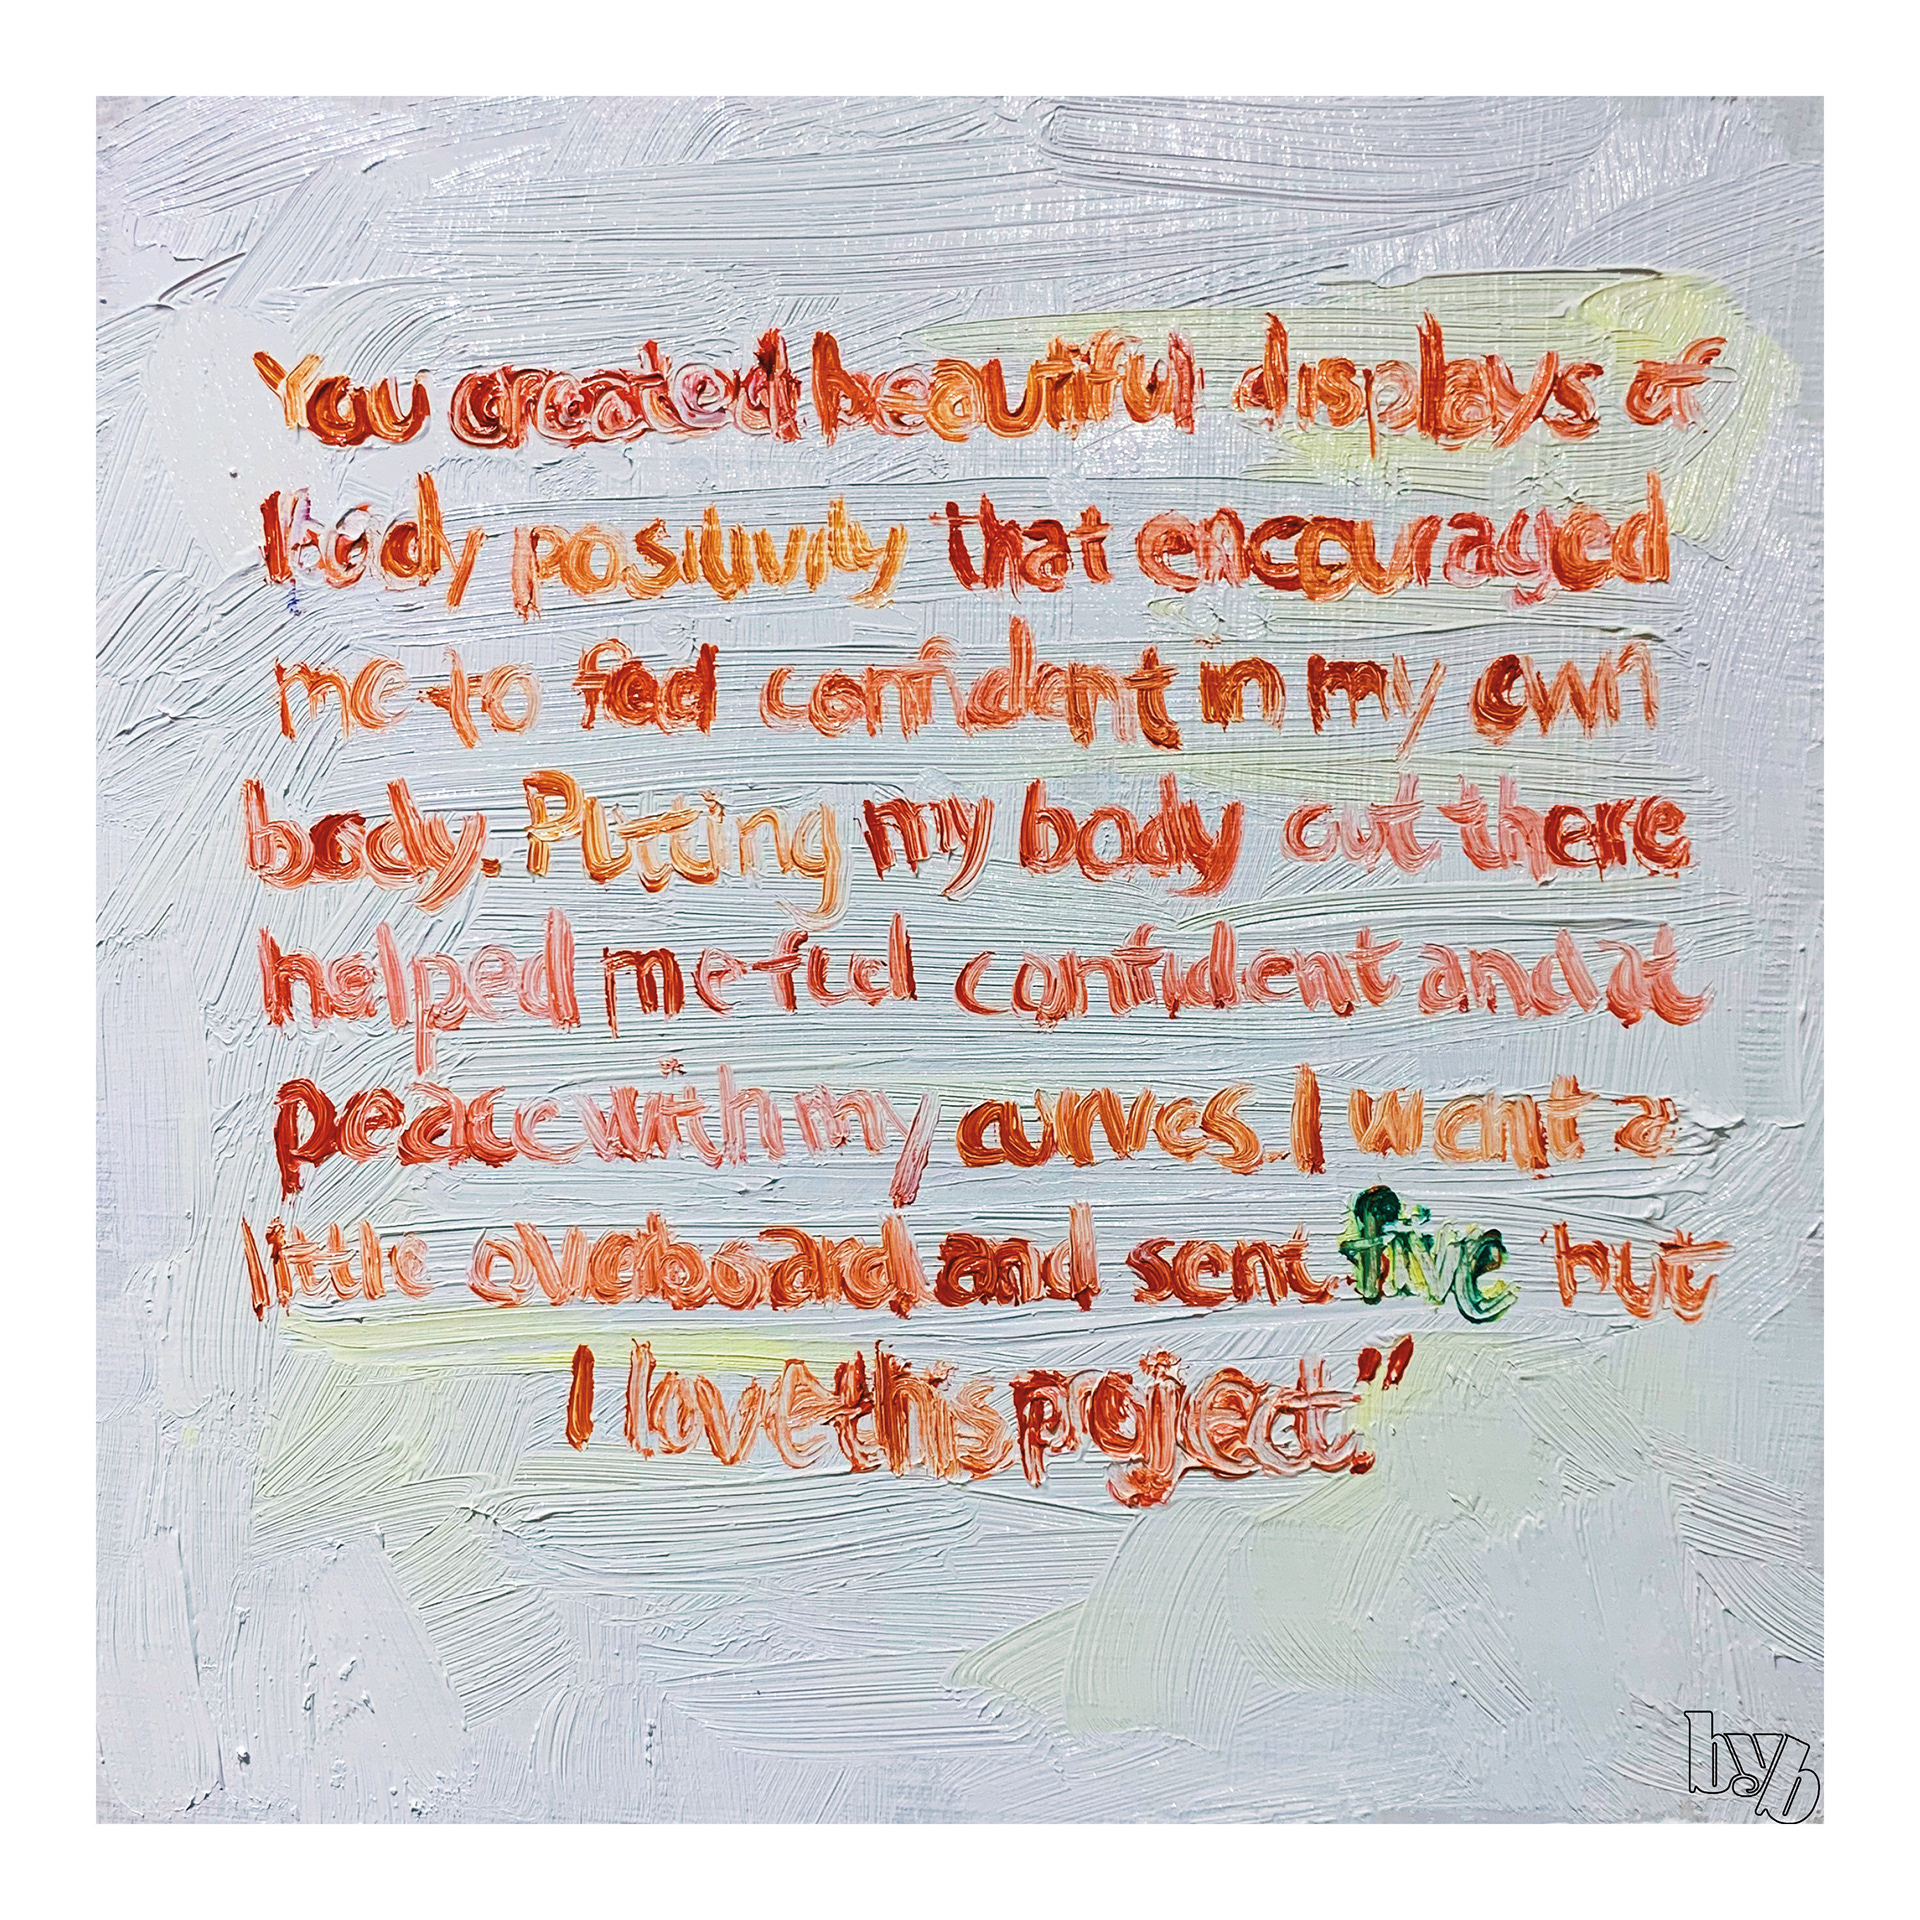 You created beautiful displays of
body positivity that encouraged
me to feel confident in my own
body. Putting my body out there
helped me feel confident and at
peace with my curves. I want a
little overboard and sent five but
I love this project."
byb